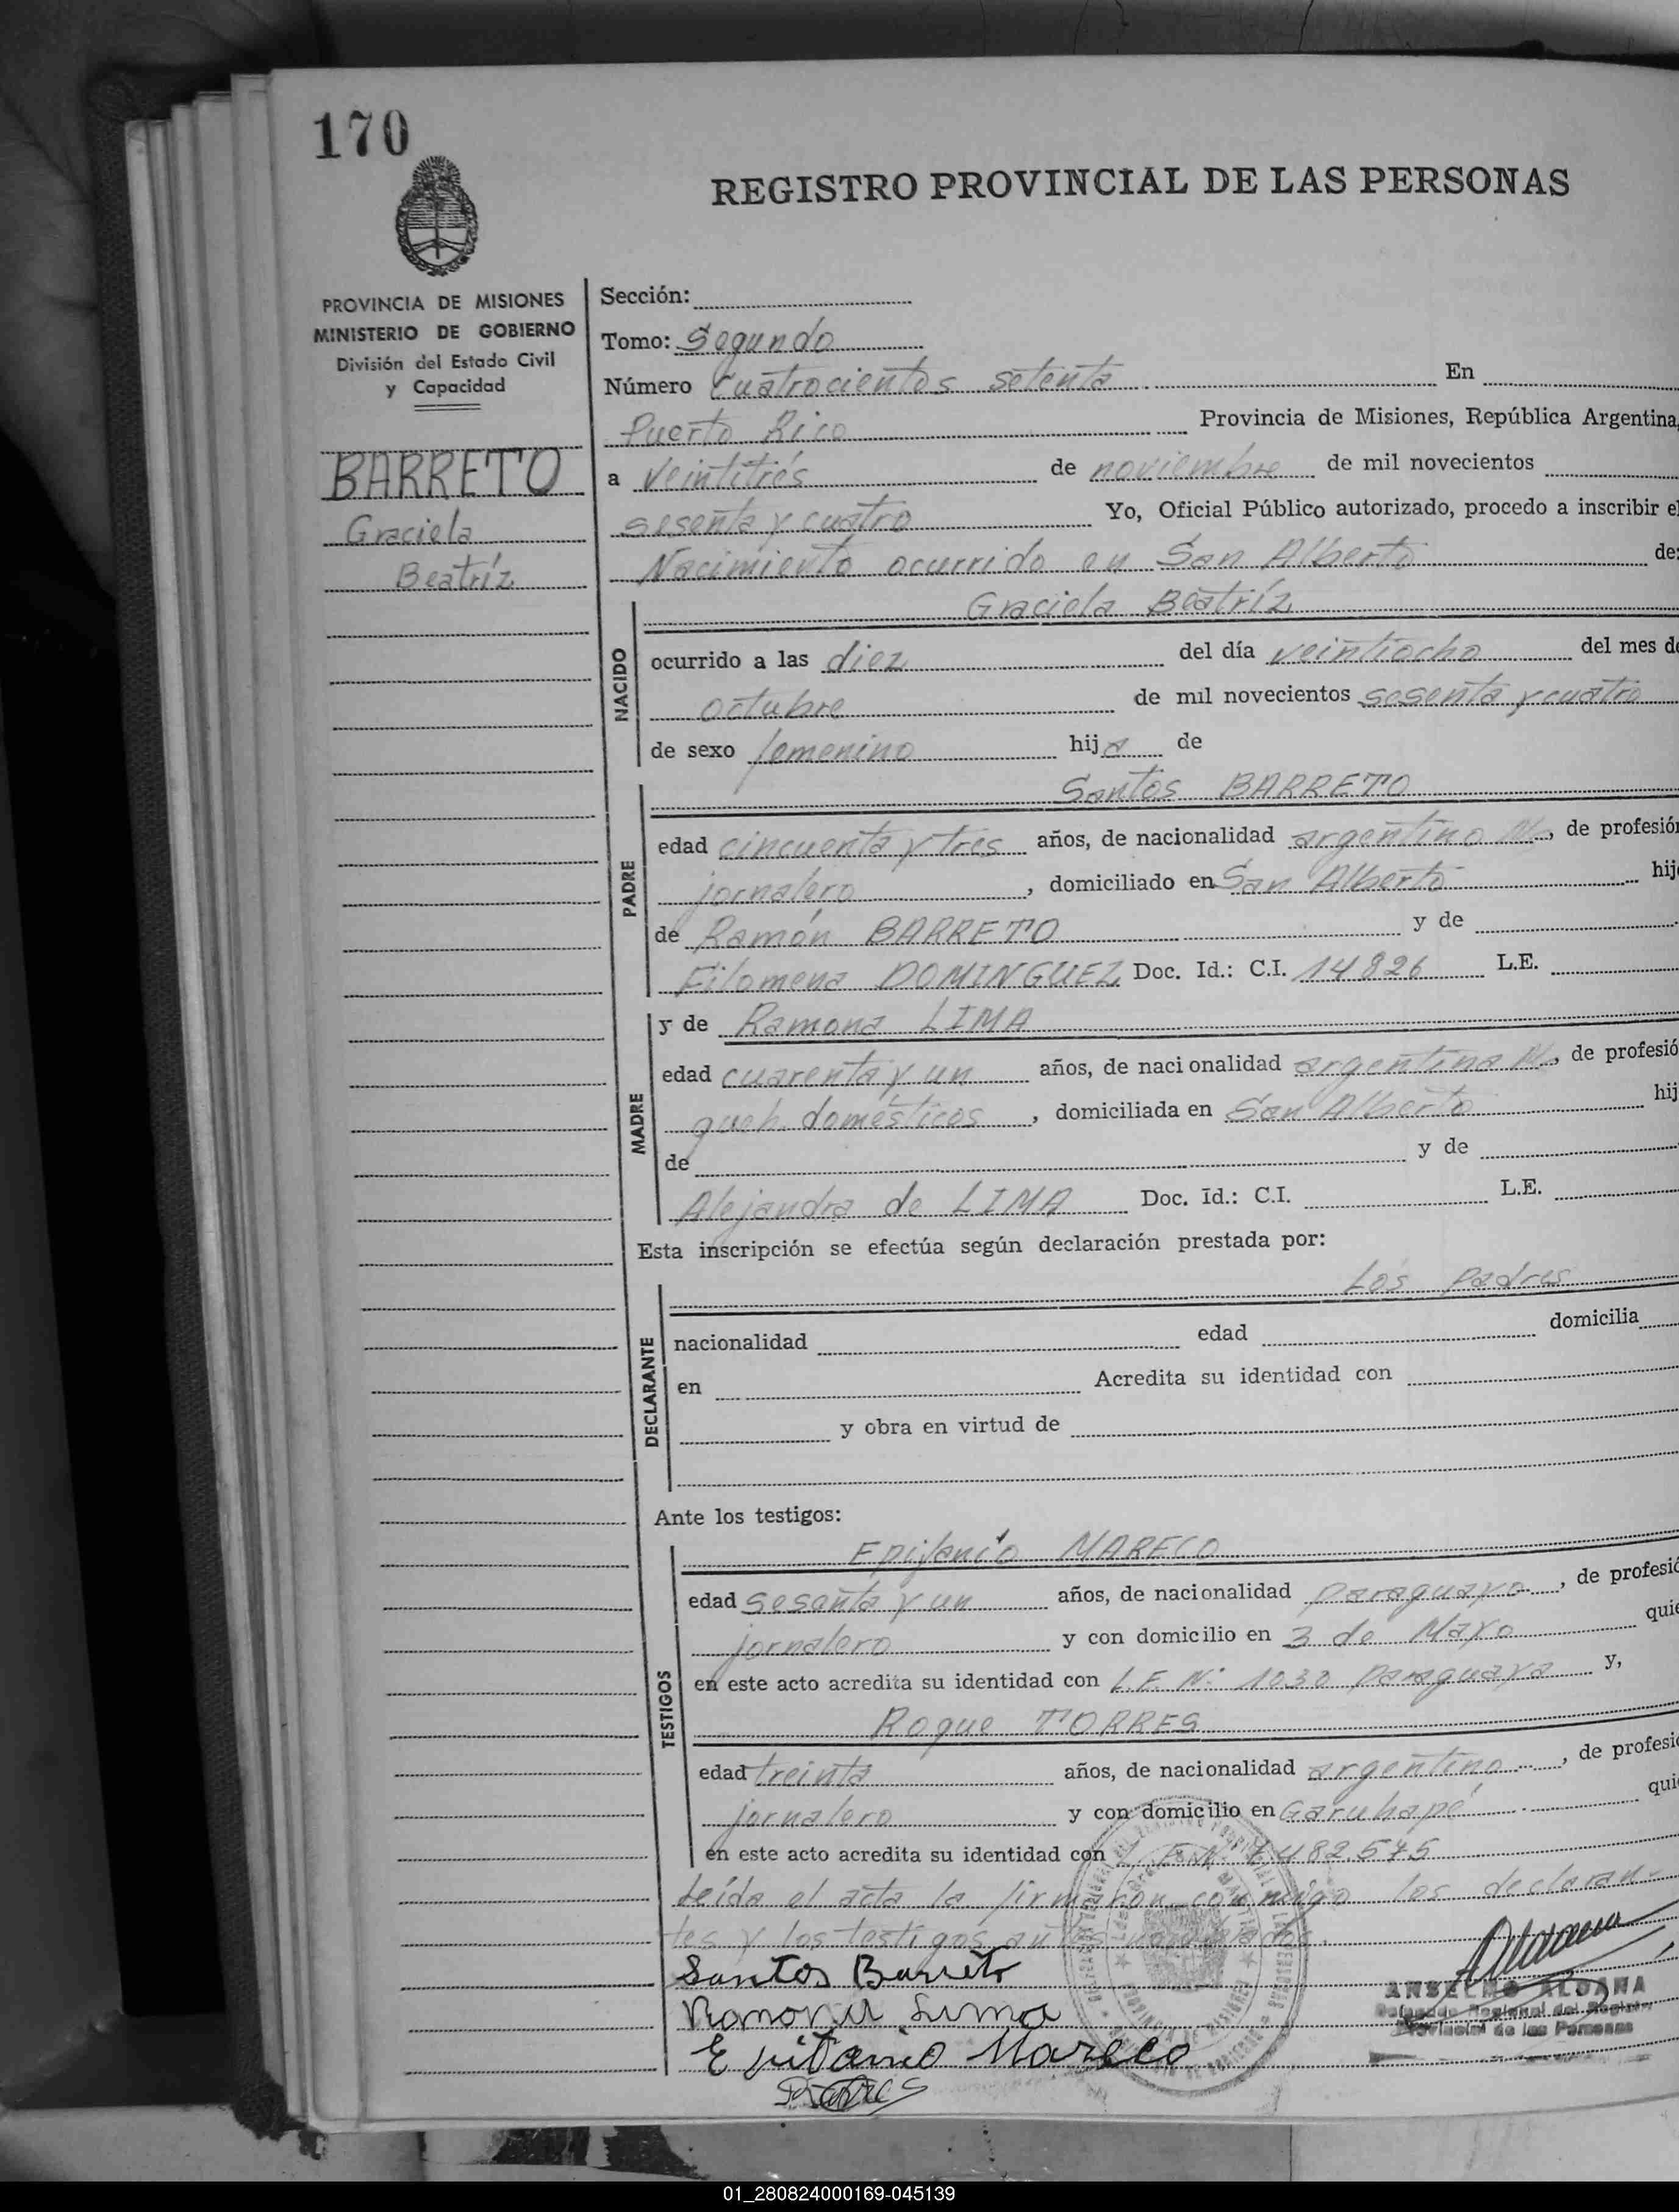 170
REGISTRO PROVINCIAL DE LAS PERSONAS
PROVINCIA DE MISIONES
MINISTERIO DE GOBIERNO
División del Estado Civil
y Capacidad
BARRETO
Graciela
Beatríz
Sección:
Tomo: Segundo
Número Cuatrocientos setenta En
Puerto Rico Provincia de Misiones, República Argentina,
a veintitrés de noviembre de mil novecientos
sesenta y cuatro Yo, Oficial Público autorizado, procedo a inscribir el
Nacimiento ocurrido en San Alberto de:
NACIDO
Graciela Beatríz
ocurrido a las diez del día veintiocho del mes de
octubre de mil novecientos sesenta y cuatro
de sexo femenino hija de
PADRE
Santos BARRETO
edad cincuenta y tres años, de nacionalidad argentino N., de profesión
jornalero, domiciliado en San Alberto hij
de Ramón BARRETO y de
Filomena DOMINGUEZ Doc. Id.: C.I. 14826 L.E.
MADRE
y de Ramona LIMA
edad cuarenta y un años, de nacionalidad argentina N., de profesió
queh. domésticos, domiciliada en San Alberto hij
de y de
Alejandra de LIMA Doc. Id.: C.I. L.E.
Esta inscripción se efectúa según declaración prestada por:
DECLARANTE
Los padres
nacionalidad edad domicilia
en Acredita su identidad con
y obra en virtud de
Ante los testigos:
TESTIGOS
Epifanio MARECO
edad sesenta y un años, de nacionalidad paraguayo, de profesió
jornalero y con domicilio en 3 de Mayo quie
en este acto acredita su identidad con L.E. Nº 1030 paraguaya y,
Roque TORRES
edad treinta años, de nacionalidad argentino, de profesió
jornalero y con domicilio en Garuhapé qui
en este acto acredita su identidad con 7.482.575
Leída el acta la firmaron conmigo los declaran-
tes y los testigos antes
Santos Barreto
Ramona Lima
Epifanio Mareco
Torres
ANSELMO ALDANA
Delegado Regional del Registro
Provincial de las Personas
01_280824000169-045139